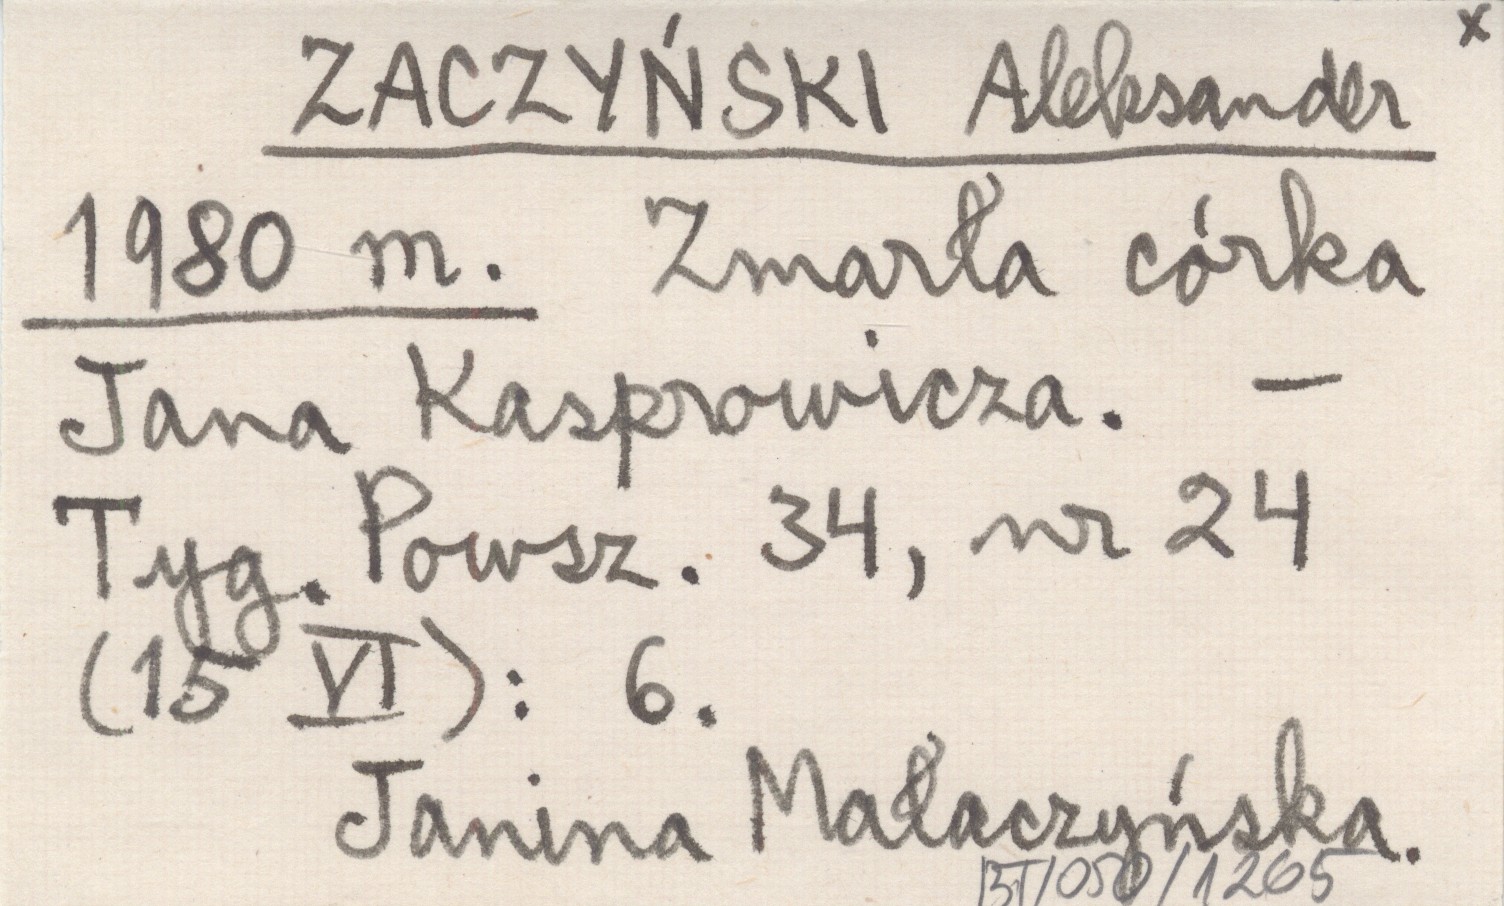 x
ZACZYŃSKI Aleksander
1980 m. Zmarła córka
Jana Kasprowicza. —
Tyg. Powsz. 34, nr 24
(15 VI): 6.
Janina Małaczyńska.
BT/050/1265